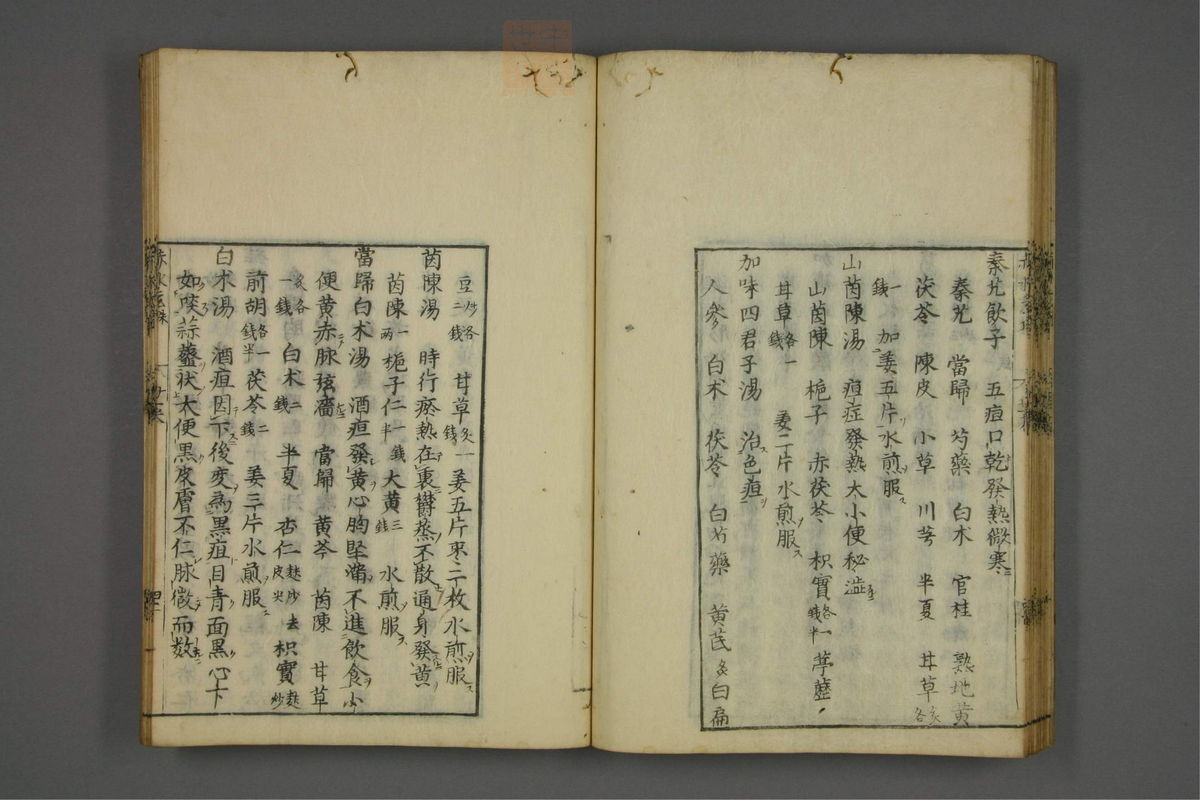 秦艽飲子 五疸口乾發熱微寒
秦艽 當歸 芍藥 白朮 官桂 熟地黃
茯苓 陳皮 小草 川芎 半夏 甘草炙各
一錢 加姜五片水煎服
山茵陳湯 疸症發熱大小便秘澁
山茵陳 梔子 赤茯苓 枳實各一錢半 葶藶
甘草各一錢 姜二片水煎服
加味四君子湯 治色疸
人參 白朮 茯苓 白芍藥 黃芪炙 白扁
豆炒各二錢 甘草炙一錢 姜五片棗二枚水煎服
茵陳湯 時行瘀熱在裏欝蒸不散通身發黃
茵陳一兩 梔子仁一錢半 大黃三錢 水煎服
當歸白朮湯 酒疸發黃心胸坚滿不進飲食小
便黃赤脉弦濇 當歸 黃芩 茵陳 甘草
炙各一錢 白朮二錢 半夏 杏仁麩炒去皮尖 枳實麩炒
前胡各一錢半 茯苓二錢 姜三片水煎服
白朮湯 酒疸因下後変為黑疸目青面黑心下
如啖蒜虀状大便黑皮膚不仁脉微而数